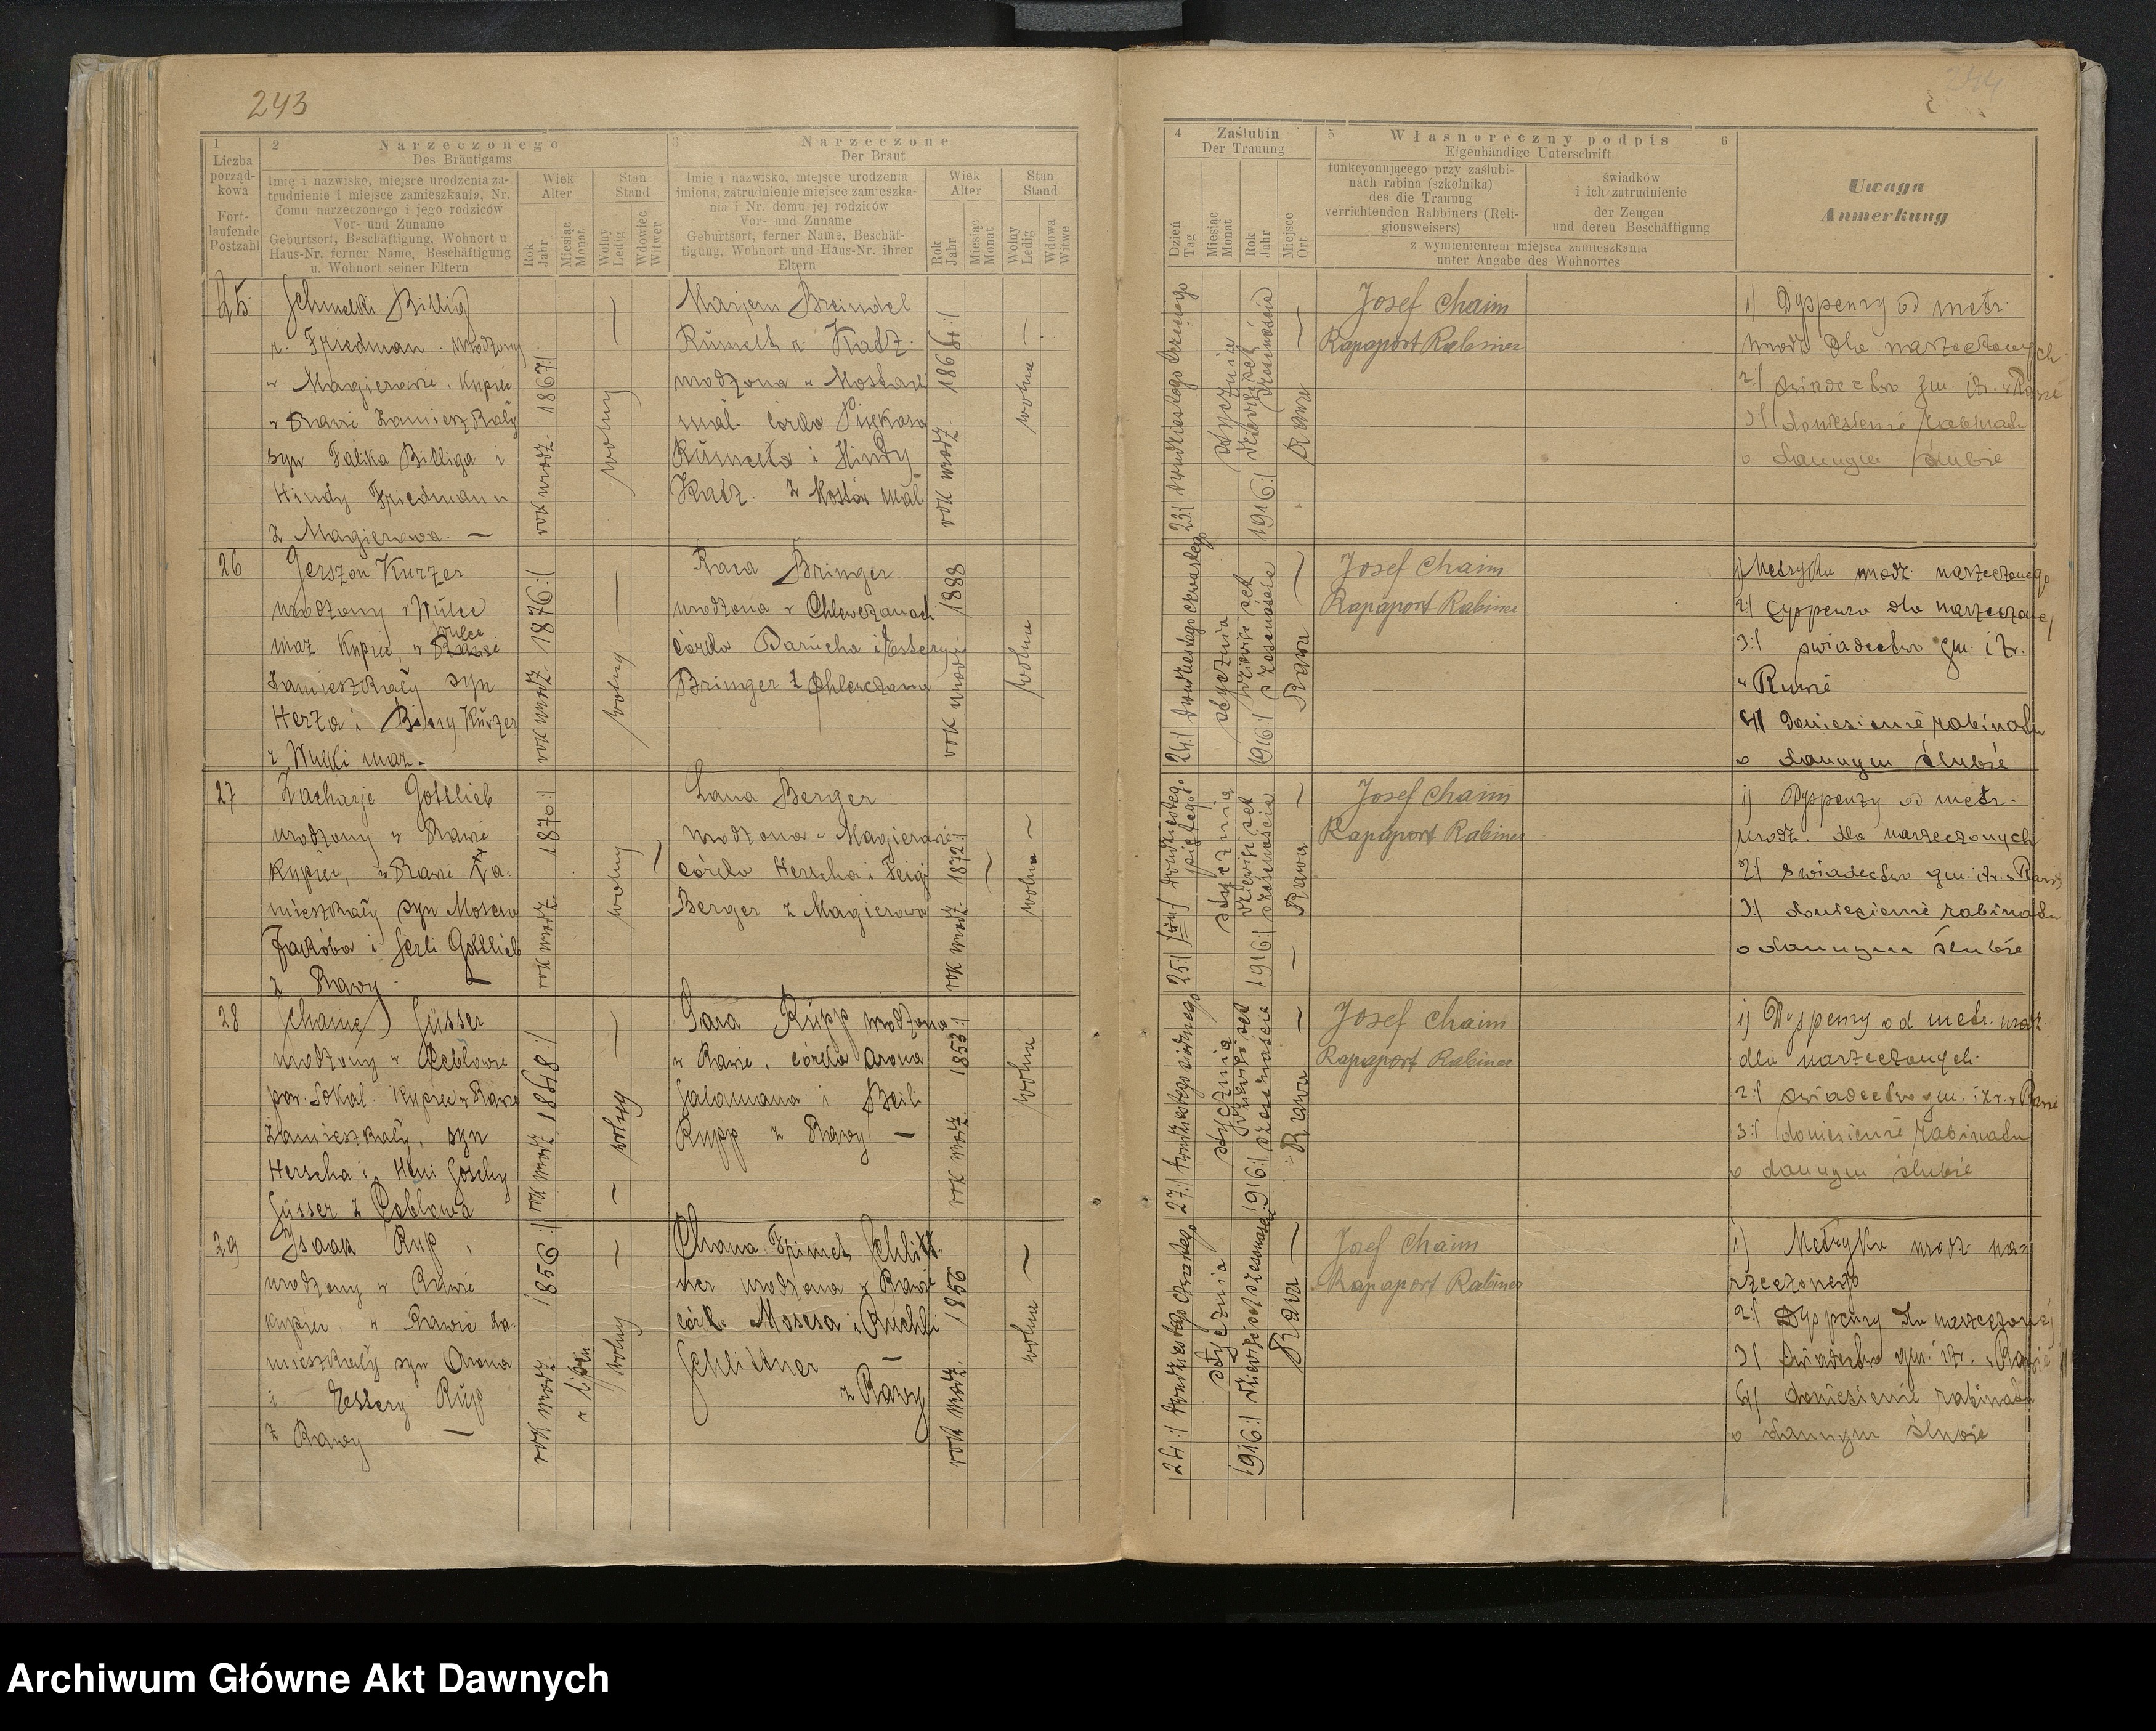 243
244
1
Liczba
porząd-
kowa
Fort-
laufende
Postzahl
2
Narzeczonego
Des Bräutigams
Imię i nazwisko, miejsce urodzenia za-
trudnienie i miejsce zamieszkania, Nr.
domu narzeczonego i jego rodziców
Vor- und Zuname
Geburtsort, Beschäftigung, Wohnort u
Haus-Nr. ferner Name, Beschäftigung
u. Wohnort seiner Eltern
Wiek
Alter
Rok
Jahr
Miesiąc
Monat
Stan
Stand
Wolny
Ledig
Wdowiec
Witwer
3
Narzeczone
Der Braut
Imię i nazwisko, miejsce urodzenia
imiona, zatrudnienie miejsce zamieszka-
nia i Nr. domu jej rodziców
Vor- und Zuname
Geburtsort, ferner Name, Beschäf-
tigung, Wohnort und Haus-Nr. ihrer
Eltern
Wiek
Alter
Rok
Jahr
Miesiąc
Monat
Stan
Stand
Wolny
Ledig
Wdowa
Witwe
4
Zaślubin
Der Trauung
Dzień
Tag
Miesiąc
Monat
Rok
Jahr
Miejsce
Ort
5
Własnoręczny podpis
6
Eigenhändige Unterschrift
funkcyonującego przy zaślubi-
nach rabina (szkolnika)
des die Trauung
verrichtenden Rabbiners (Reli-
gionsweisers)
świadków
i ich zatrudnienie
der Zeugen
und deren Beschäftigung
z wymienieniem miejsca zamieszkania
unter Angabe des Wohnortes
Uwaga
Anmerkung
25
Schmelki Billig
r. Friedman. urodzony
w Magierowie. Kupiec
w Rawie Zamieszkały
syn Falika Billiga i
Hindy Friedman
z Magierowa. —
rok urodz. 1867:/
wolny
Marjem Breindel
Katz
urodzona w Mostach
mał. córka Pinkasa
i Hindy
Katz. z Mostów mał.
rok urodz. 1864:/
wolna
23:/ dwudziestego trzeciego
stycznia
1916:/ dziewięćset szesnaście
Rawa
Josef Chaim
Rapaport Rabiner
1) Dyspenzy od metr.
urodz. dla narzeczonych
2:/ świadectwo gm. izr. w Rawie
3:/ doniesienie rabinatu
o danym ślubie
26
Gerszon Kurzer
urodzony w Wulce
maz Kupiec, w Rawie
Wulce
Zamieszkały syn
Herza i Kurzer
z Wulki maz.
rok urodz. 1876:/
wolny
Bringer
urodzona w Chlewczanach
córka Barucha i Estery
Bringer z Chlewczana
rok urodz 1888
wolna
24:/ dwudziestego czwartego
stycznia
1916:/ dziewięćset szesnaście
Rawa
Josef Chaim
Rapaport Rabiner
1/ Metryka urodz. narzeczonego
2:/ Dyspenza dla narzeczonej
3:/ świadectwo gm. izr.
w Rawie
4/ doniesienie rabinatu
o danym ślubie
27
Zacharje Gottlieb
urodzony w Rawie
Kupiec, w Rawie Za-
mieszkały syn Mosesa
Jakóba i Serli Gottlieb
z Rawy
rok urodz. 1870:/
wolny
Lana Berger
urodzona w Magierowie
córka Herscha i Feigi
Berger z Magierowa
rok urodz. 1872:/
wolna
25:/ dwudziestego piątego
stycznia
1916:/ dziewięćset szesnaście
Rawa
Josef Chaim
Rapaport Rabiner
1) Dyspenzy od metr.
urodz. dla narzeczonych
2:/ świadectwo gm. izr. w Rawie
3:/ doniesienie rabinatu
o danym ślubie
28
Süsser
urodzony w
pow. Sokal. Kupiec w Rawie
Zamieszkały, syn
Herscha i
Süsser z
rok urodz 1848:/
wolny
Sara Rupp urodzona
w Rawie, córka Arona
Salamana i Beili
Rupp z Rawy —
rok urodz. 1853:/
wolna
27:/ dwudziestego siódmego
stycznia
1916:/ dziewięćset szesnaście
Rawa
Josef Chaim
Rapaport Rabiner
1) Dyspenzy od metr. urodz.
dla narzeczonych
2:/ świadectwo gm. izr. w Rawie
3:/ doniesienie rabinatu
o danym ślubie
29
Isaak Rup,
urodzony w Rawie
kupiec, w Rawie za-
mieszkały syn Arona
i Estery Rup
z Rawy —
rok urodz. 1856:/
w lipcu
wolny
Chana Frimet Schlitt-
ner urodzona w Rawie
córk. Mosesa i Ruchli
Schlittner —
z Rawy
rok urodz. 1856
wolna
24:/ dwudziestego czwartego
stycznia
1916:/ dziewięćset szesnaście
Rawa
Josef Chaim
Rapaport Rabiner
1) Metryka urodz. na-
rzeczonego
2:/ Dyspenzy dla narzeczonej
3/ świadectwo gm. izr. w Rawie
4/ doniesienie rabinatu
o danym ślubie
Archiwum Główne Akt Dawnych